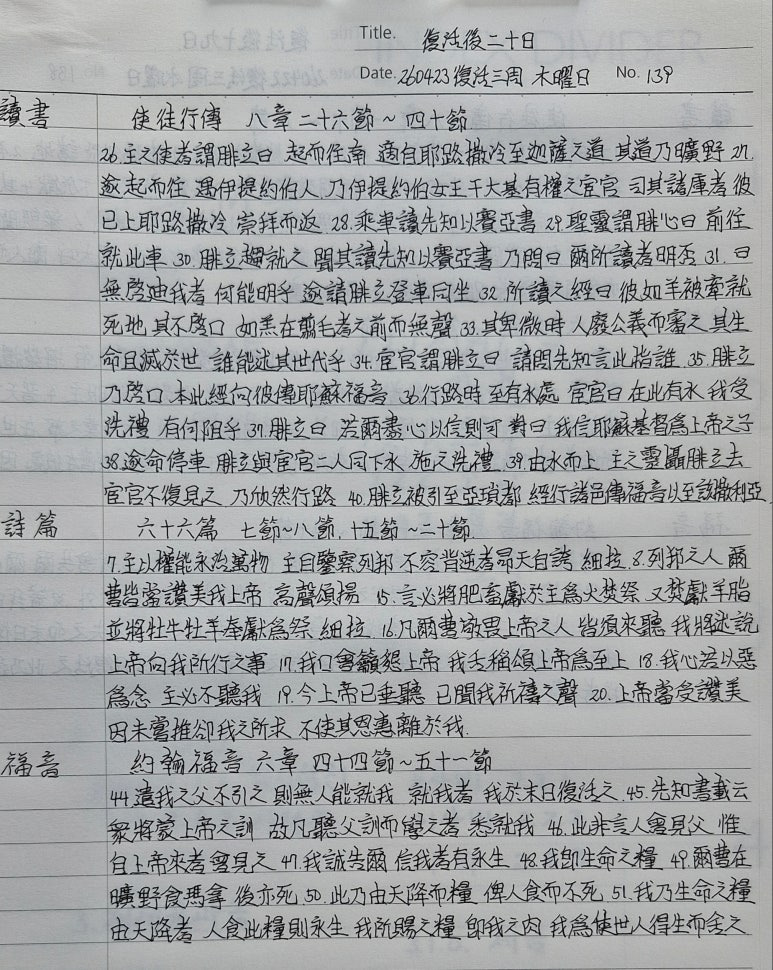 Title. 復活後二十日
Date. 260423 復活三周 木曜日 No. 139
讀書 使徒行傳 八章 二十六節~四十節
26.主之使者謂腓立曰 起而往南 適自耶路撒冷至迦薩之道 其道乃曠野 27.
遂起而往 遇伊提約伯人 乃伊提約伯女王干大基有權之宦官 司其諸庫者 彼
已上耶路撒冷 崇拜而返 28.乘車讀先知以賽亞書 29.聖靈謂腓立曰 前往
就此車 30.腓立趨就之 聞其讀先知以賽亞書 乃問曰 爾所讀者明否 31.曰
無啓迪我者 何能明乎 遂請腓立登車同坐 32.所讀之經曰 彼如羊被牽就
死地 其不啓口 如羔在剪毛者之前而無聲 33.其卑微時 人廢公義而審之 其生
命且滅於世 誰能述其世代乎 34.宦官謂腓立曰 請問先知言此指誰 35.腓立
乃啓口 本此經向彼傳耶穌福音 36.行路時 至有水處 宦官曰 在此有水 我受
洗禮 有何阻乎 37.腓立曰 若爾盡心以信則可 對曰 我信耶穌基督爲上帝之子
38.遂命停車 腓立與宦官二人同下水 施之洗禮 39.由水而上 主之靈攝腓立去
宦官不復見之 乃欣然行路 40.腓立被引至亞瑣都 經行諸邑傳福音以至該撒利亞
詩篇 六十六篇 七節~八節, 十五節~二十節
7.主以權能永治萬物 主目鑒察列邦 不容背逆者昂天自誇 細拉. 8.列邦之人 爾
曹皆當讚美我上帝 高聲頌揚 15.言必將肥畜獻於主爲火焚祭 又焚獻羊脂
並將牡牛牡羊奉獻爲祭 細拉. 16.凡爾曹敬畏上帝之人 皆須來聽 我將述說
上帝向我所行之事 17.我口曾籲懇上帝 我舌稱頌上帝爲至上 18.我心若以惡
爲念 主必不聽我 19.今上帝已垂聽 已聞我祈禱之聲 20.上帝當受讚美
因未嘗推卻我之所求 不使其恩惠離於我.
福音 約翰福音 六章 四十四節~五十一節
44.遣我之父不引之 則無人能就我 就我者 我於末日復活之. 45.先知書載云
衆將蒙上帝之訓 故凡聽父訓而學之者 悉就我 46.此非言人曾見父 惟
自上帝來者曾見之 47.我誠告爾 信我者有永生 48.我卽生命之糧 49.爾曹在
曠野食瑪拿 後亦死 50.此乃由天降而糧 俾人食而不死 51.我乃生命之糧
由天降者 人食此糧則永生 我所賜之糧 卽我之肉 我爲使世人得生而舍之